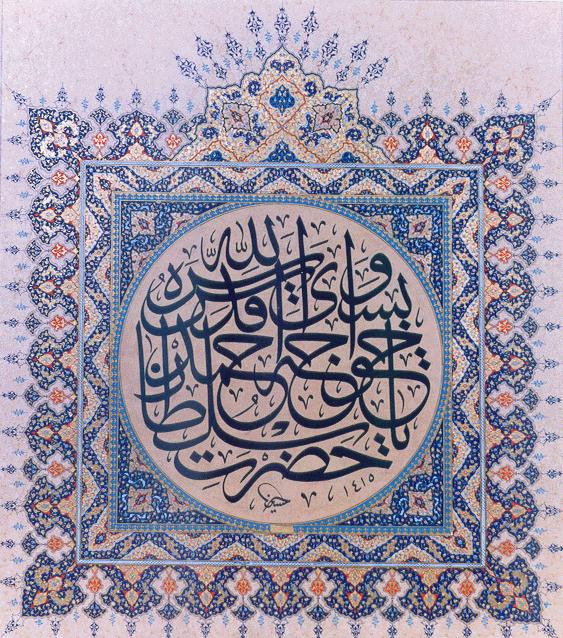 يا حضرت سلطان
خواجه احمد
يسوى قدس الله سره
١٤١٥